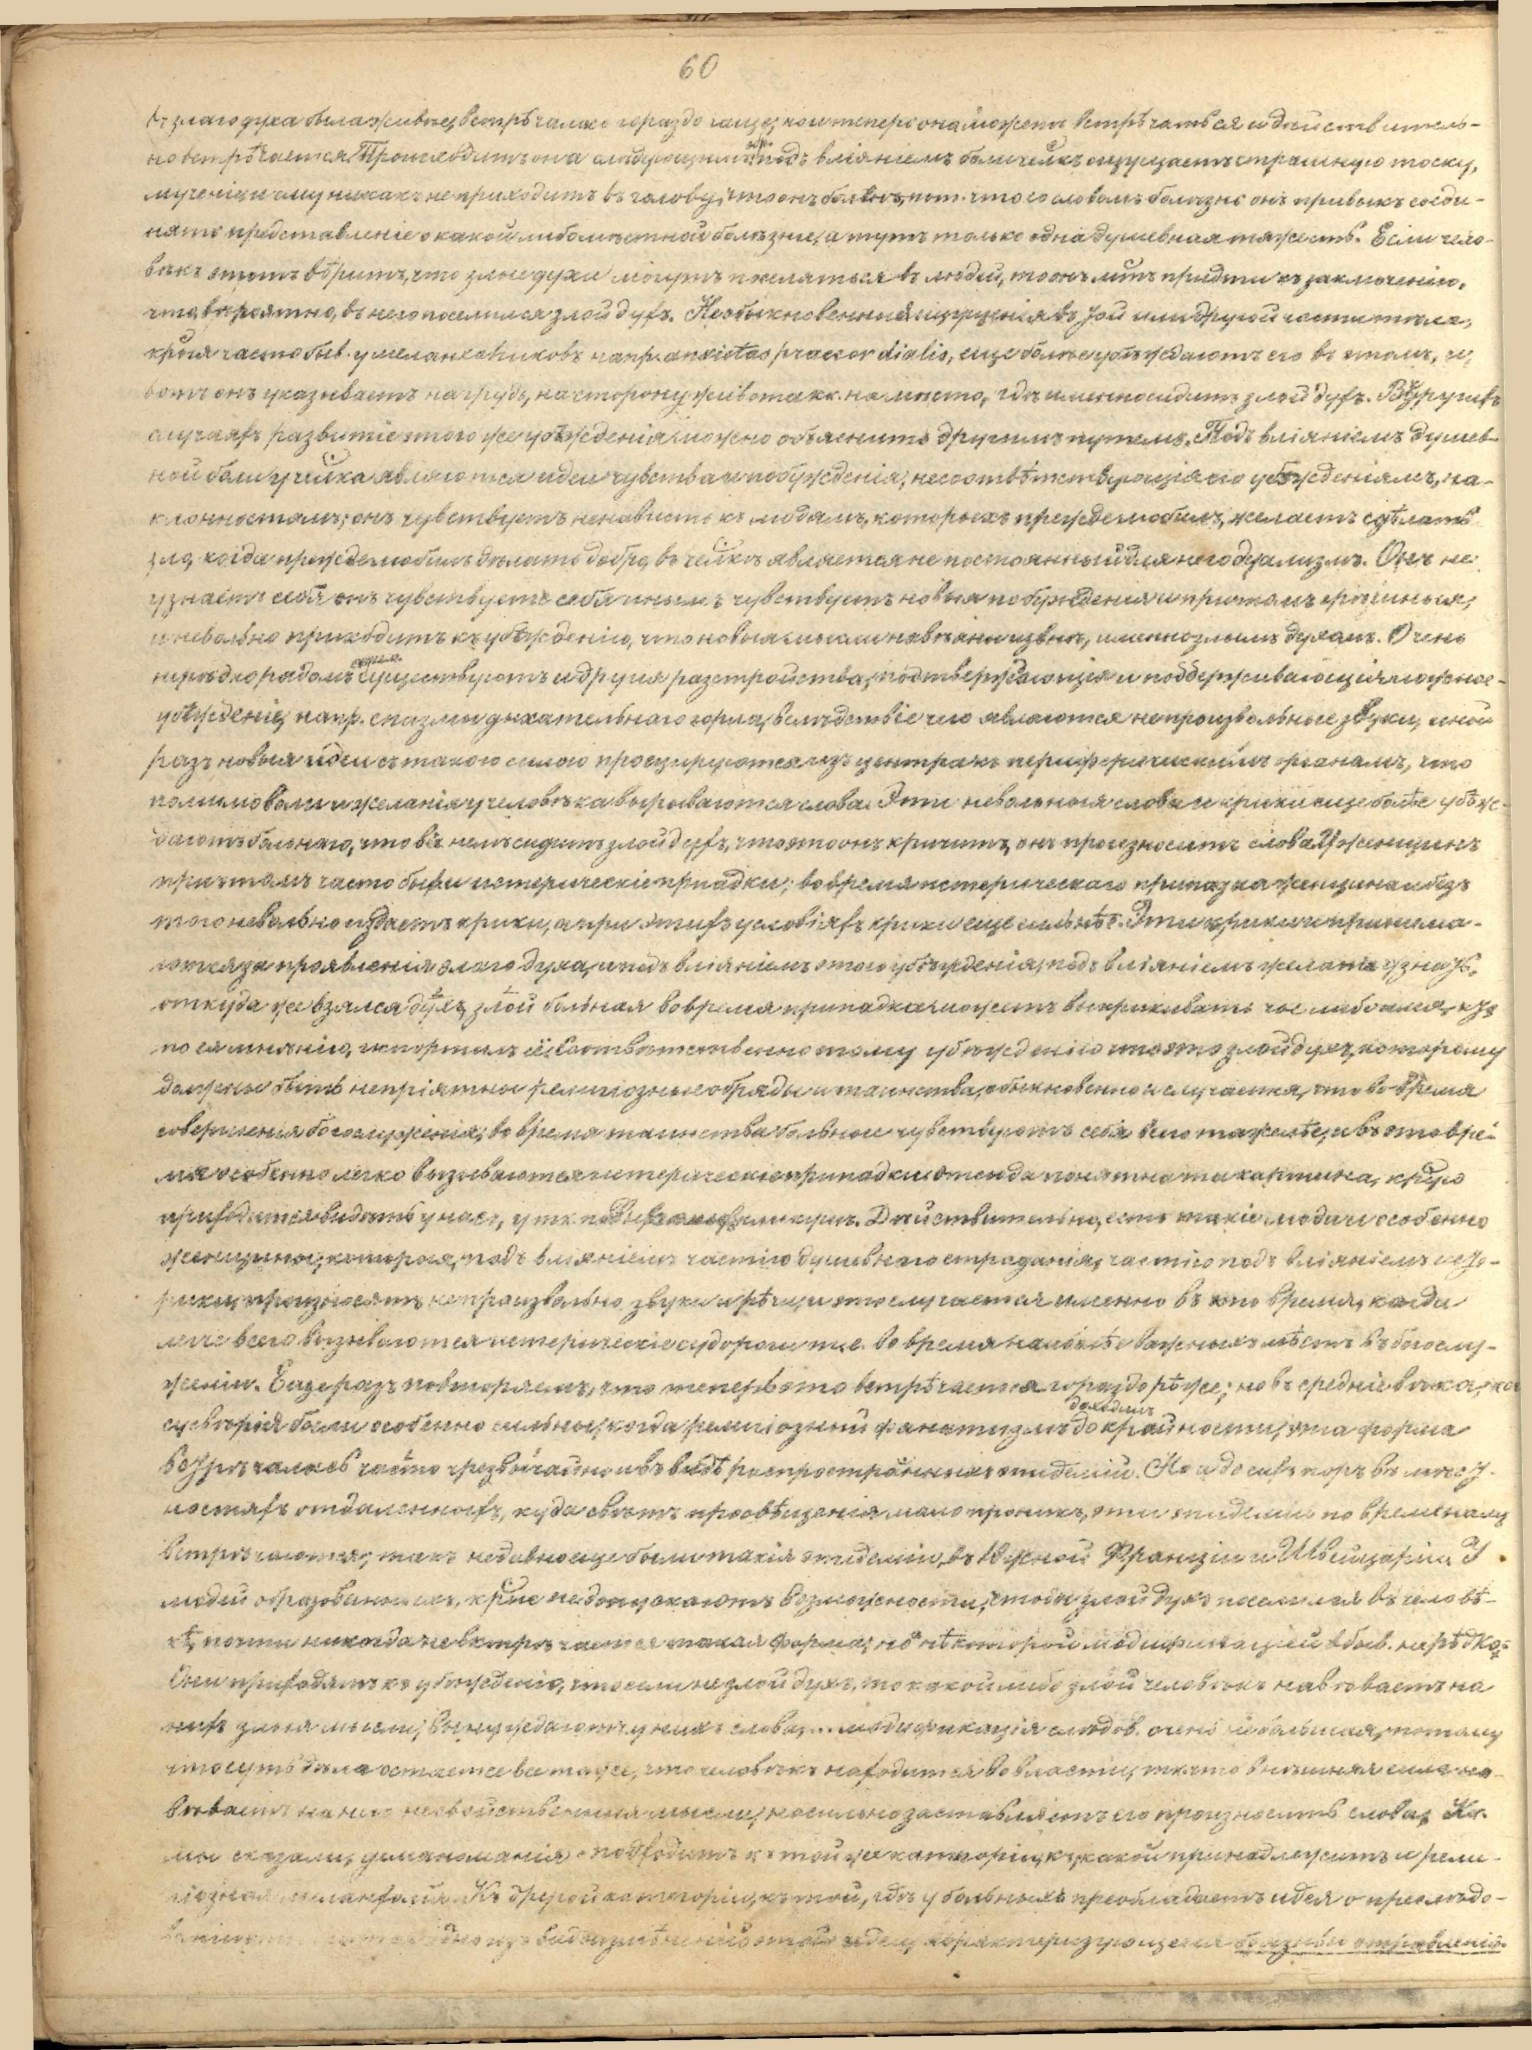 60
злаго духа была живѣе, встрѣчалась гораздо чаще; но и теперь она можетъ встрѣчаться и дѣйствитель-
но встрѣчается. Происходитъ она слѣдующимъ обр. подъ вліяніемъ боли челкъ ощущаетъ страшную тоску,
мученіе, и ему никакъ не приходитъ въ голову, что онъ боленъ, пот. что со словомъ болѣзнь онъ привыкъ соеди-
нять представленіе о какой либо мѣстной болѣзни, а тутъ только одна душевная тяжесть. Если чело-
вѣкъ этотъ вѣритъ, что злые духи могутъ вселяться въ людей, то онъ придти къ заключенію,
что вѣроятно, въ него поселился злой духъ. Необыкновенныя ощущенія въ той или другой части тѣла,
крыя часто быв. у меланхоликовъ напр. anxietas praecordialis, еще болѣе убѣждаютъ его въ этомъ, и,
вотъ онъ указываетъ на грудь, на сторону живота на мѣсто, гдѣ именно сидитъ злой духъ. Въ другихъ
случаяхъ развитіе этого же убѣжденія можно объяснить другимъ путемъ. Подъ вліяніемъ душев-
ной боли у челка являются идеи чувства и побужденія, несоотвѣтствующія его убѣжденіямъ, на-
клонностямъ; онъ чувствуетъ ненависть къ людямъ, которыхъ прежде любилъ, желаетъ сдѣлать
зло, когда прежде любилъ дѣлать добро, въ челкѣ является не постоянный для него дуализмъ. Онъ не
узнаетъ себя онъ чувствуетъ себя инымъ чувствуетъ новыя побужденія и притомъ страшныя,
и невольно приходитъ къ убѣжденію, что новыя мысли навѣяны извнѣ, именно злымъ духомъ. Очень
нерѣдко рядомъ существуютъ и другія разстройства, подтверждающія и поддерживающія ложное
убѣжденіе, напр. спазмы дыхательнаго горла, вслѣдствіе чего являются непроизвольные звуки, иной
разъ новыя идеи съ такою силою проецируются изъ центра къ периферическимъ органамъ, что
помимо воли и желанія у человѣка вырываются слова. Эти невольныя слова и крики еще болѣе убѣж-
даютъ больнаго, что въ немъ сидитъ злой духъ, что это онъ кричитъ, онъ произноситъ слова. У женщинъ
при этомъ часто быв. истерическіе припадки; во время истерическаго припадка женщина и безъ
того невольно издаетъ крики, а при этихъ условіяхъ крики еще сильнѣе. Эти крики и принима-
ются за проявленія злаго духа, и подъ вліяніемъ этого убѣжденія, подъ вліяніемъ желанія узнать,
откуда же взялся духъ злой больная во время припадка можетъ выкрикивать чье либо имя, кто
по ея мнѣнію, испортилъ её. Соотвѣтственно тому убѣжденію что это злой духъ, которому
должны быть непріятны религіозные обряды и таинства, обыкновенно и случается, что во время
совершенія богослуженія, во время таинства больные чувствуютъ себя всего тяжелѣе, и въ это вре-
мя особенно легко вызываются истерическіе припадки. Отсюда понятна та картина, крую
приходится видѣть у насъ, у т. н. кликушъ. Дѣйствительно, есть такіе люди и особенно
женщины, которыя, подъ вліяніемъ частію душевнаго страданія, частію подъ вліяніемъ исте-
рики, произносятъ непроизвольно звуки и рѣчи, и это случается именно въ то время, когда
легче всего вызываются истерическіе судороги т. е. во время наиболѣе важныхъ мѣстъ въ богослу-
женіи. Еще разъ повторяемъ, что теперь это встрѣчается гораздо рѣже; но въ средніе вѣка, ког
суевѣрія были особенно сильны, когда религіозный фанатизмъ доходилъ до крайности, эта форма
встрѣчалась часто чрезвычайно и въ видѣ распространенныхъ эпидемій. Но и до сихъ поръ въ мѣст-
ностяхъ отдаленныхъ, куда свѣтъ просвѣщенія мало проникъ, эти эпидеміи по временамъ
встрѣчаются; такъ недавно еще были такія эпидеміи, въ Южной Франціи и Швейцаріи. У
людей образованныхъ, крые не допускаютъ возможности, чтобы злой духъ поселился въ человѣ-
кѣ, почти никогда не встрѣчается такая форма; но съ нѣкоторой модификаціей быв. нерѣдко.
Они приходятъ къ убѣжденію, что если не злой духъ, то какой либо злой человѣкъ навѣваетъ на
нихъ злыя мысли, вынуждаютъ у нихъ слова,... модификація слѣдов. очень небольшая, потому
что суть дѣла остается все та же, что человѣкъ находится во власти, что внѣшняя сила на-
вѣваетъ на него несвойственныя мысли, насильно заставляетъ его произносить слова. Как
мы сказали, демономанія подходитъ къ той же категоріи, къ какой принадлежитъ и рели-
гіозная меланхолія. Къ другой категоріи, къ той, гдѣ у больныхъ преобладаетъ идея о преслѣдо-
ваніи одно изъ видоизмѣненій этой идеи, характеризующееся боязнью отравленія.